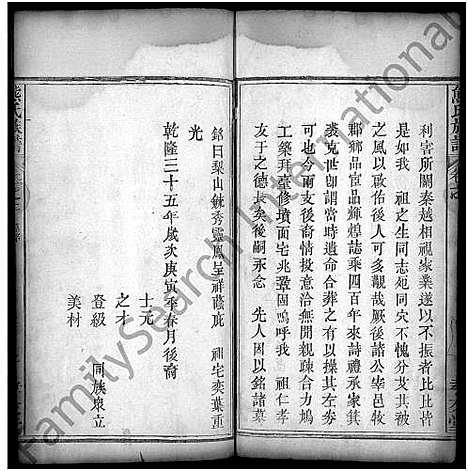 熊氏族譜
利害所關秦越相視家業遂以不振者比比皆
是如我 祖之生同志宛同穴不愧分支其被
之風以啟佑後人可多觀哉厥後諸公
鄰鄉品宦品輝煌誌乘四百年來詩禮承家箕
裘克世卽謂當時遺命合葬之有以操其左劵
可也今兩支後裔情掞意洽無閒親疎合力鳩
工築拜臺修墳面宅兆鞏固嗚呼我 祖仁孝
友于之德長矣後嗣永念 先人因以銘諸墓
銘曰梨山毓秀靈鳳呈祥蔭庇 祖宅奕葉重
光
乾隆三十五年歲次庚寅季春月後裔
士元
之才
登級 同族衆立
美材
熊氏族譜
FamilySearch International